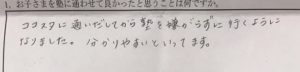 1. お子さまを塾に通わせて良かったと思うことは何ですか。
ココスタに通いだしてから塾を嫌がらずに行くように
なりました。分かりやすいといってます。